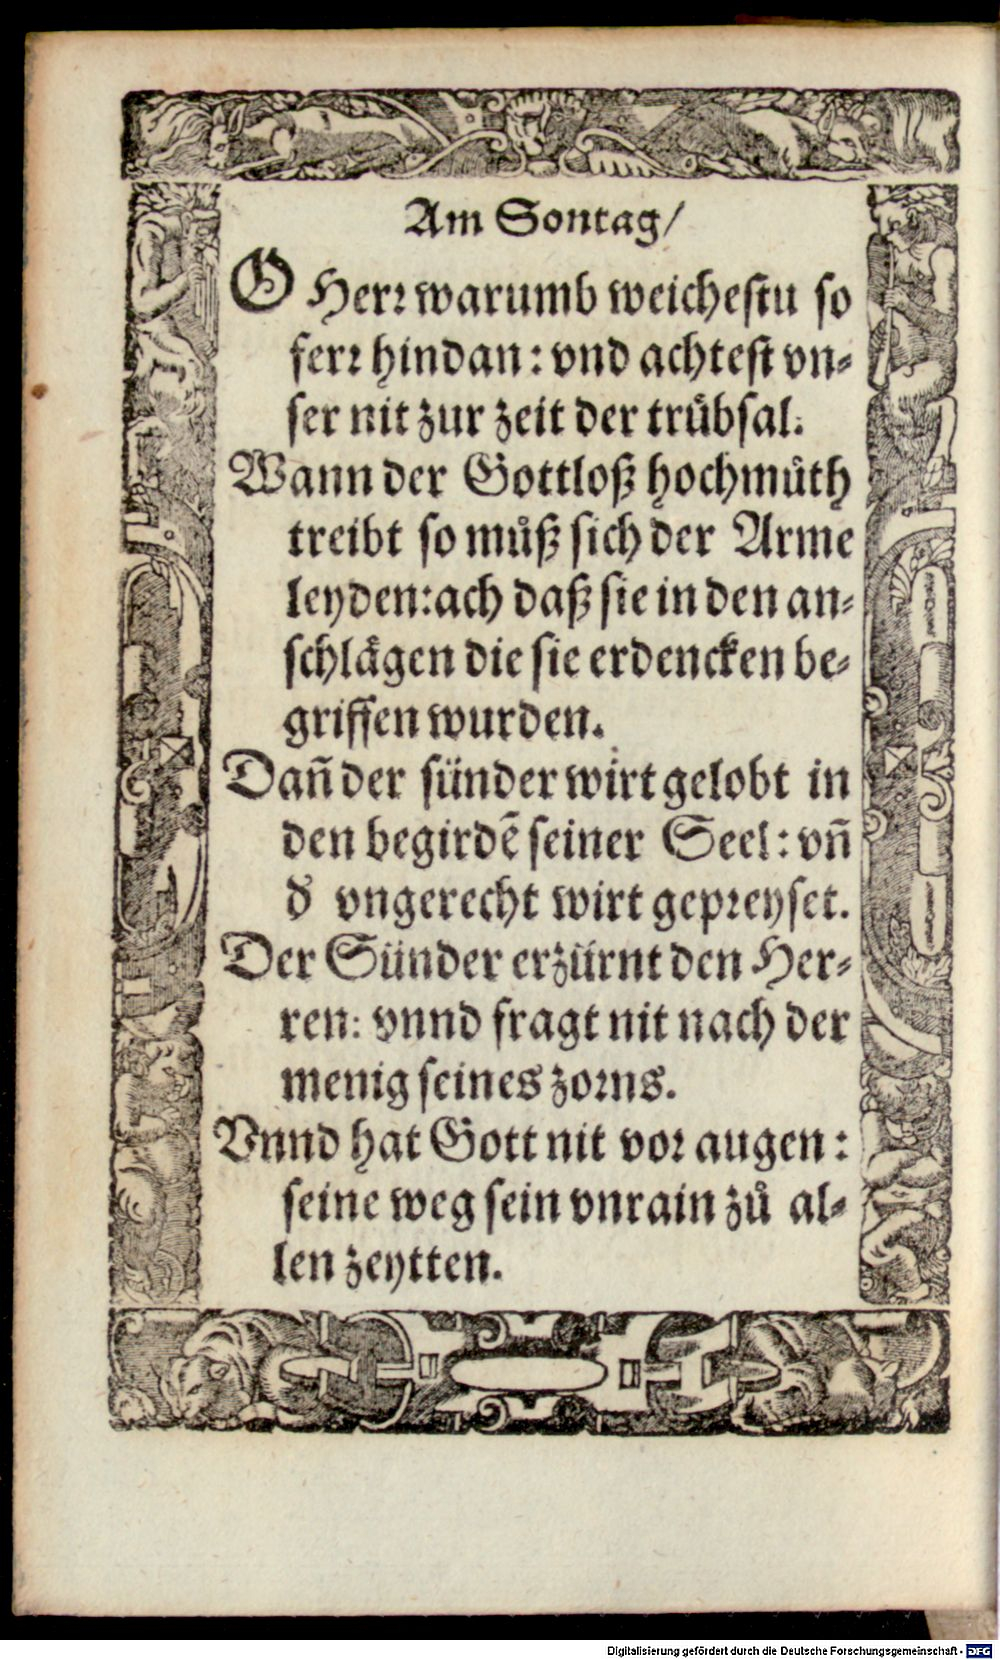 Am Sontag/
O Herr warumb weichestu so
ferr hindan: vnd achtest vn-
ser nit zur zeit der trübsal.
Wann der Gottloß hochmüth
treibt so můß sich der Arme
leyden: ach daß sie in den an-
schlägen die sie erdencken be-
griffen wurden.
Dañ der sünder wirt gelobt in
den begirdẽ seiner Seel: vñ
d̕ vngerecht wirt gepreyset.
Der Sünder erzürnt den Her-
ren: vnnd fragt nit nach der
menig seines zorns.
Vnnd hat Gott nit vor augen:
seine weg sein vnrain zů al-
len zeytten.
Digitalisierung gefördert durch die Deutsche Forschungsgemeinschaft - DFG